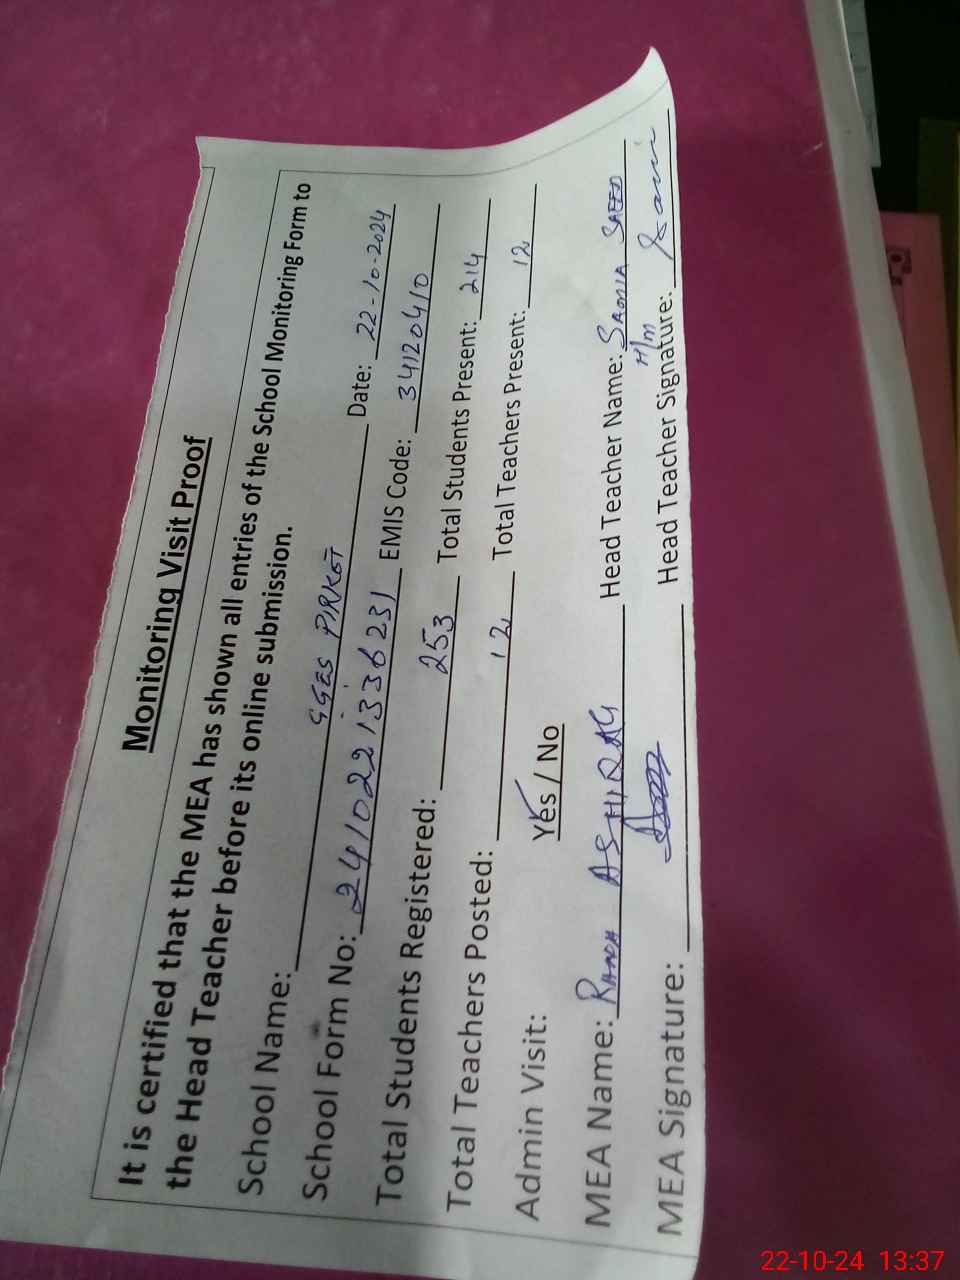 Monitoring Visit Proof
It is certified that the MEA has shown all entries of the School Monitoring Form to
the Head Teacher before its online submission.
School Name: GGES PIRKOT Date: 22-10-2024
School Form No: 2410221336231 EMIS Code: 34120410
Total Students Registered: 253 Total Students Present: 214
Total Teachers Posted: 12 Total Teachers Present: 12
Admin Visit: Yes / No
MEA Name: RANA ASHFAQ Head Teacher Name: SAMIA SAEED
H/M
MEA Signature: Head Teacher Signature: Sami
22-10-24 13:37